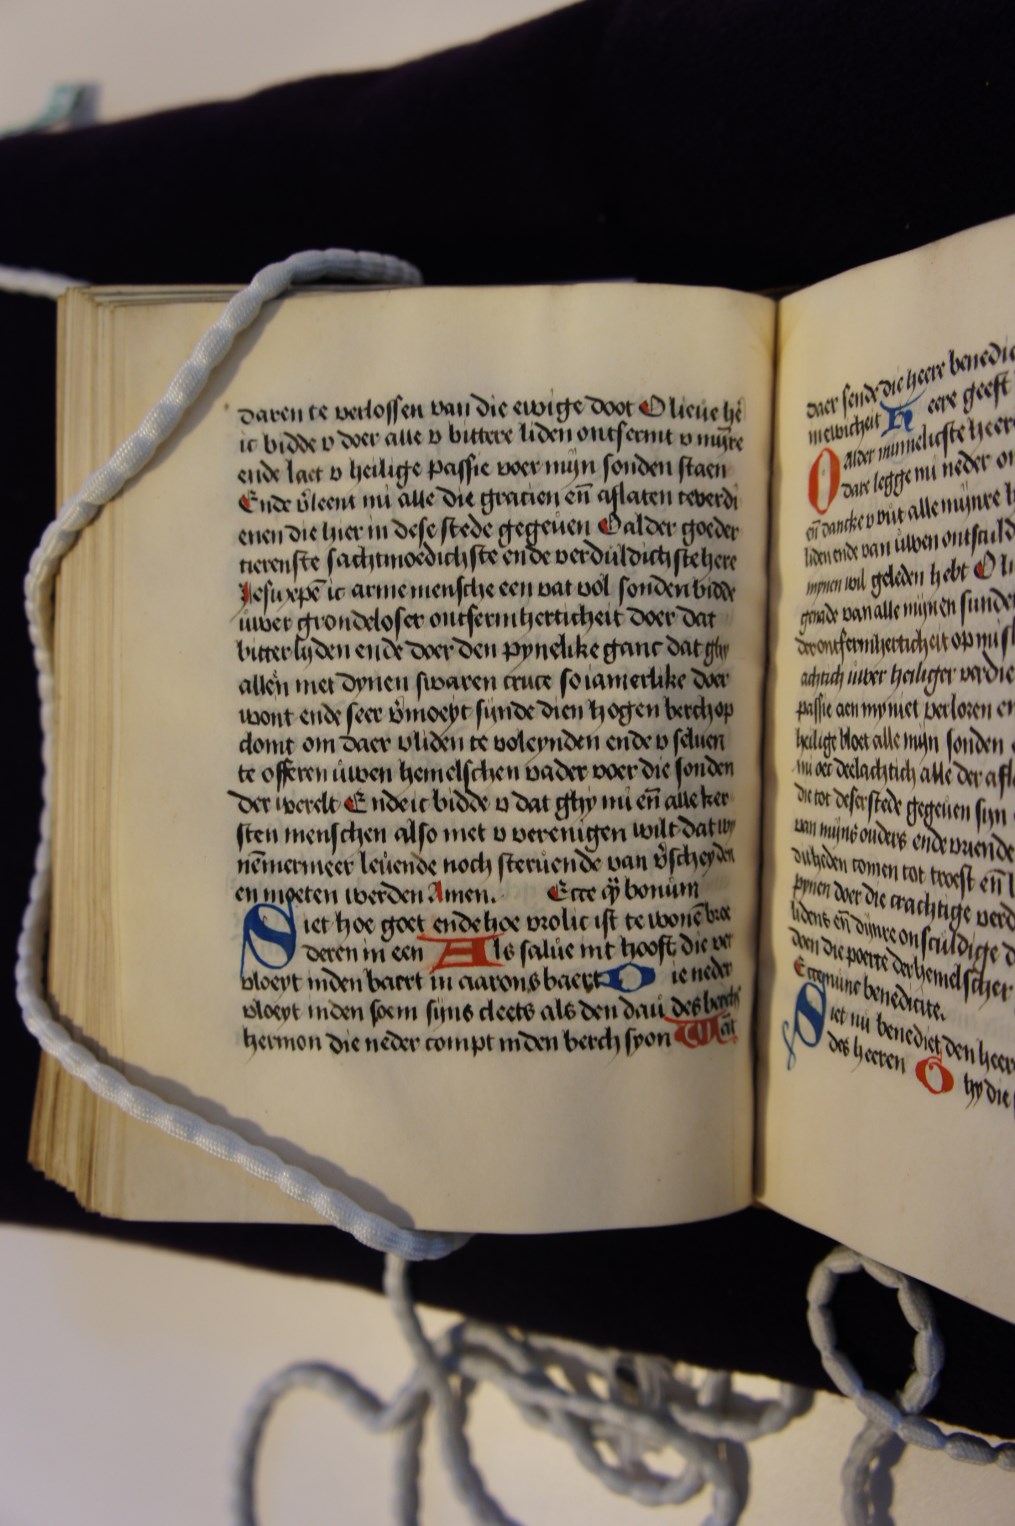 daren te verlossen van die ewige doot O lieue hē
ic bidde v doer alle v bittere liden ontfermt v mijre
ende laet v heilige passie voer mijn sonden staen
Ende v̄leent mi alle die gracien en̄ aflaten teverdi
enen die hier in dese stede gegeuen O alder goeder
tierenste sachtmoedichste ende verduldichste here
Jesu xpē ic arme mensche een vat vol sonden bidde
uwer grondeloser ontfermherticheit doer dat
bitter lyden ende doer den pynelike ganc dat ghy
allen met dynen swaren cruce so iamerlike doer
wont ende seer v̄moeyt sijnde dien hogen berch op
clomt om daer v liden te voleynden ende v seluen
te offeren uwen hemelschen vader voer die sonden
der werelt Ende ic bidde v dat ghy mi en̄ alle ker
sten menschen also met v verenigen wilt dat wy
nēmermeer leuende noch steruende van v̄scheyden
en moeten werden Amen. Ecce q̄ bonum
Siet hoe goet ende hoe vrolic ist te wonē broe
deren in een Als salue int hooft die ver
vloeyt inden baert in aarons baert Die neder
vloeyt inden soem sijns cleets als den dau des berchs
hermon die neder compt inden berch syon
daer sende die heere
in ewicheit Heere geeft
O alder minnelicste heer
dare legge mi neder
en̄ dancke v van alle mijnre
liden ende van uwen
mynen wil geleden hebt O
genade van alle mijnen sunde
der ontfermherticheit op mi
achtich uwer heiliger verdie
passie aen my niet verloren
heilige bloet alle mijn sonden
mi oec deelachtich alle der
die tot deser stede gegeuen syn
van mijns ouders ende vriende
comen tot troest en̄
pynen doer die crachtige
lidens en̄ dijnre onsculdige
doen die poerte der hemelscher
Ecce nunc benedicite.
Siet nu benediet den heer
des heeren